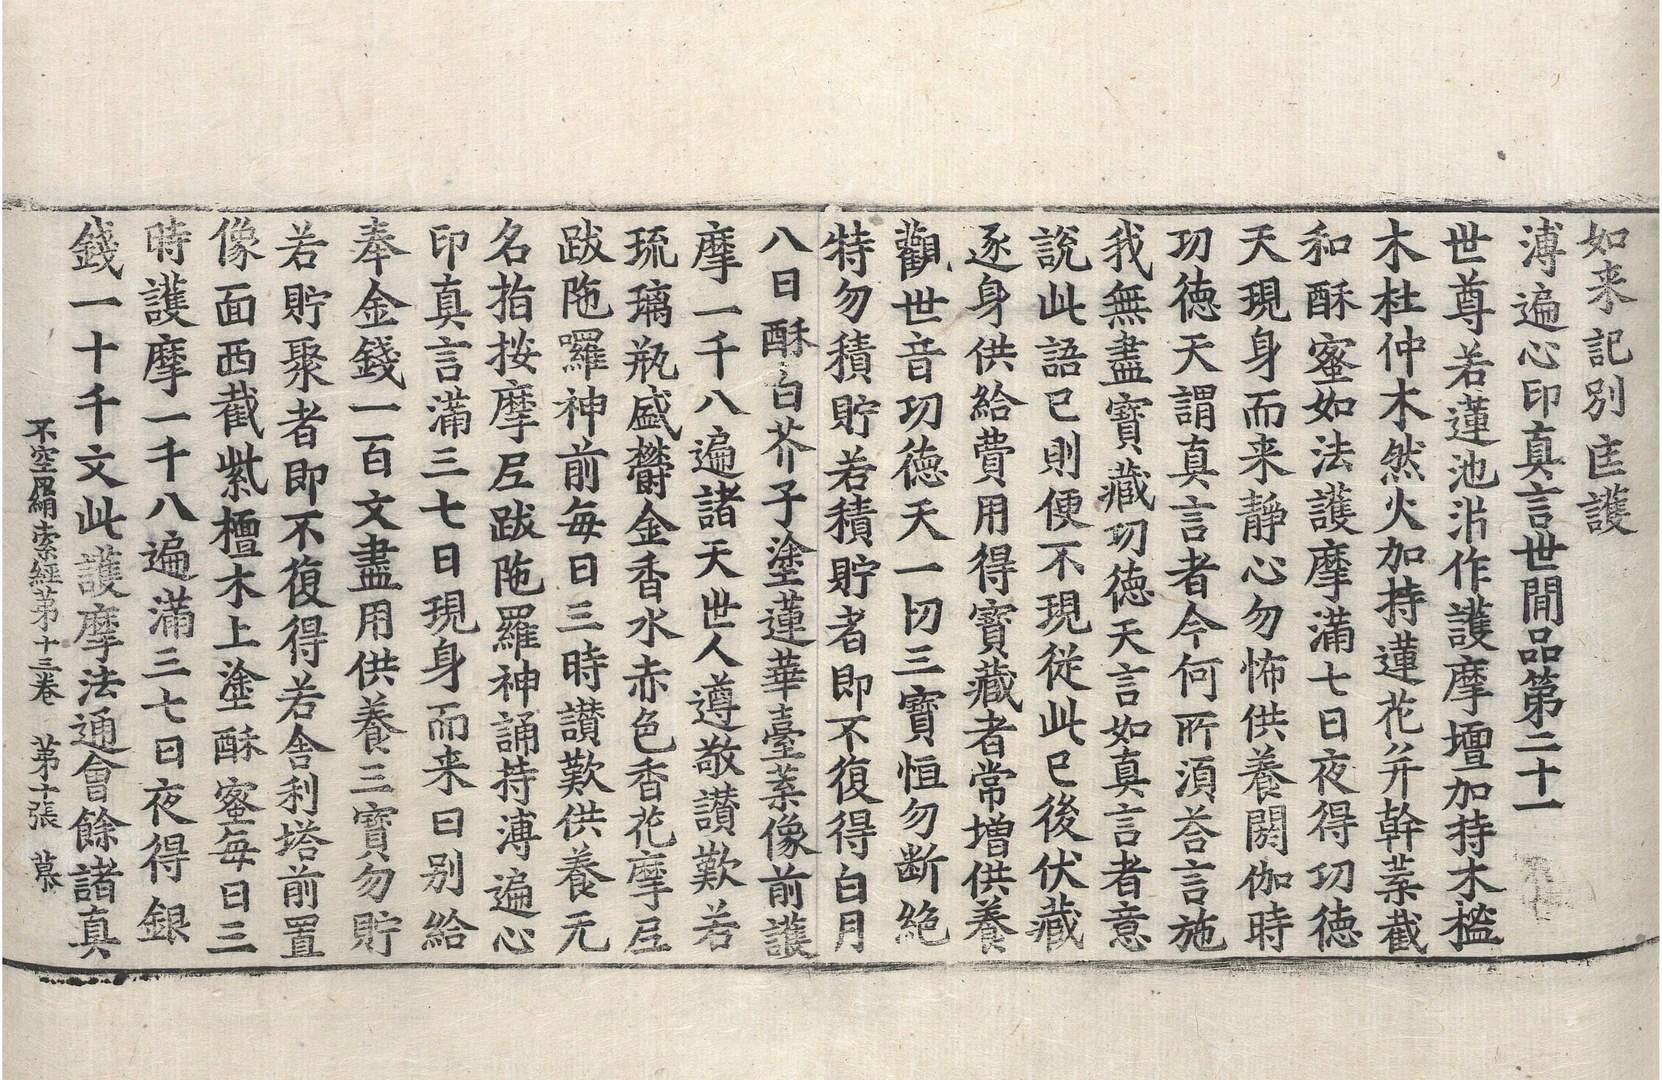 如来記別㢋護
溥遍心印真言世閒品第二十一
世尊若蓮池㳂作護摩壇加持木槛
木杜仲木然火加持蓮花并幹葉截
和酥蜜如法護摩滿七日夜得功徳
天現身而来静心勿怖供養閼伽時
功徳天謂真言者今何所湏荅言施
我無盡寳藏功徳天言如真言者意
說此語已則便不現從此已後伏藏
逐身供給費用得寳藏者常增供養
觀世音功徳天一切三寳恒勿断絶
特勿積貯若積貯者即不復得白月
八日酥白芥子塗蓮華臺葉像前護
摩一千八遍諸天世人遵敬讃歎若
琉璃瓶盛欝金香水赤色香花摩𡰱
跋陁囉神前每日三時讃歎供養无
名指按摩𡰱跋陁羅神誦持溥遍心
印真言滿三七日現身而来日别給
奉金錢一百文盡用供養三寳勿貯
若貯聚者即不復得若舍利塔前置
像面西截紫檀木上塗酥蜜每日三
時護摩一千八遍滿三七日夜得銀
錢一十千文此護摩法通會餘諸真
不空罥索經第十三卷 第十張 慕